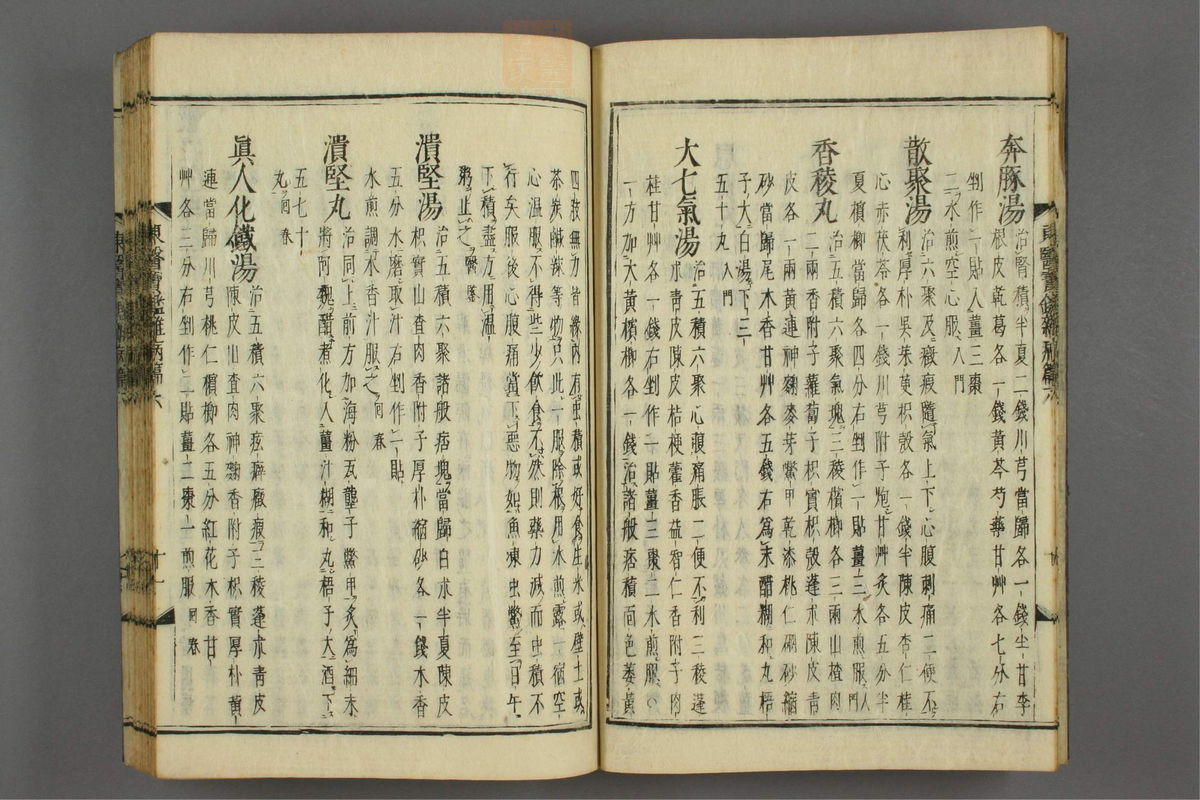 奔豚湯 治腎積半夏二錢川芎當歸各一錢半甘李
根皮乾葛各一錢黃芩芍藥甘艸各七分右
剉作一貼入薑三棗
二水煎空心服入門
散聚湯 治六聚及癥瘕隨氣上下心腹刺痛二便不
利厚朴吳茱萸枳殼各一錢半陳皮杏仁桂
心赤茯苓各一錢川芎附子炮甘艸炙各五分半
夏檳榔當歸各四分右剉作一貼薑三水煎服入門
香稜丸 治五積六聚氣塊三稜檳榔各三兩山楂肉
二兩香附子蘿蔔子枳實枳殼蓬朮陳皮青
皮各一兩黃連神麴麥芽鱉甲乾漆桃仁硼砂縮
砂當歸尾木香甘艸各五錢右爲末醋糊和丸梧
子大白湯下三
五十丸入門
大七氣湯 治五積六聚心腹痛脹二便不利三稜蓬
朮青皮陳皮桔梗藿香益智仁香附子肉
桂甘艸各一錢右剉作一貼薑三棗二水煎服
一方加大黃檳榔各一錢治諸般痞積面色萎黃
四肢無力皆緣內有虫積或好食生米或壁土或
茶炭鹹辣等物只此一服除根用水煎露一宿空
心溫服不得些少飮食不然則藥力減而虫積不
行矣服後心腹痛當下惡物如魚凍虫鱉至日午
下積盡方用溫
粥止之醫鑑
潰堅湯 治五積六聚諸般痞塊當歸白朮半夏陳皮
枳實山査肉香附子厚朴縮砂各一錢木香
五分水磨取汁右剉作一貼
水煎調木香汁服之回春
潰堅丸 治同上前方加海粉瓦壟子鱉甲炙爲細末
將阿魏醋煮化入薑汁糊和丸梧子大酒下
五七十
丸回春
眞人化鐵湯 治五積六聚痃癖癥瘕三稜蓬朮青皮
陳皮山査肉神麴香附子枳實厚朴黃
連當歸川芎桃仁檳榔各五分紅花木香甘
艸各三分右剉作一貼薑二棗一煎服回春
東醫寶鑑雜病篇六
十一